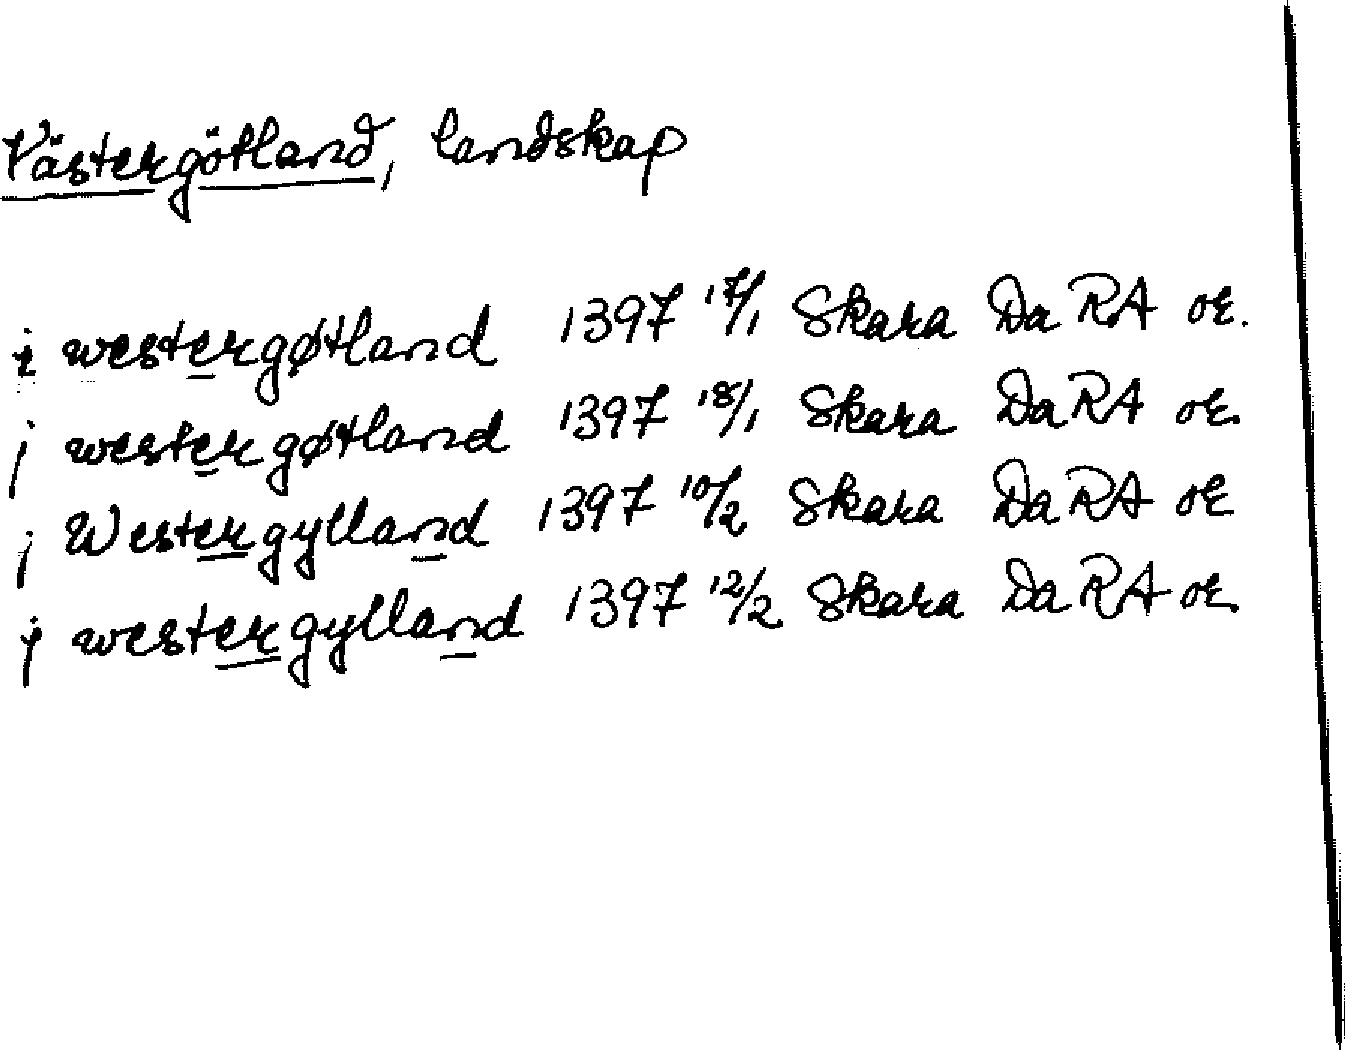 Västergötland, landskap
i westergøtland 1397 17/1 Skara DaRA or.
j westergøtland 1397 18/1 Skara DaRA or.
j Westergylland 1397 10/2 Skara DaRA or
j westergylland 1397 12/2 Skara DaRA or.